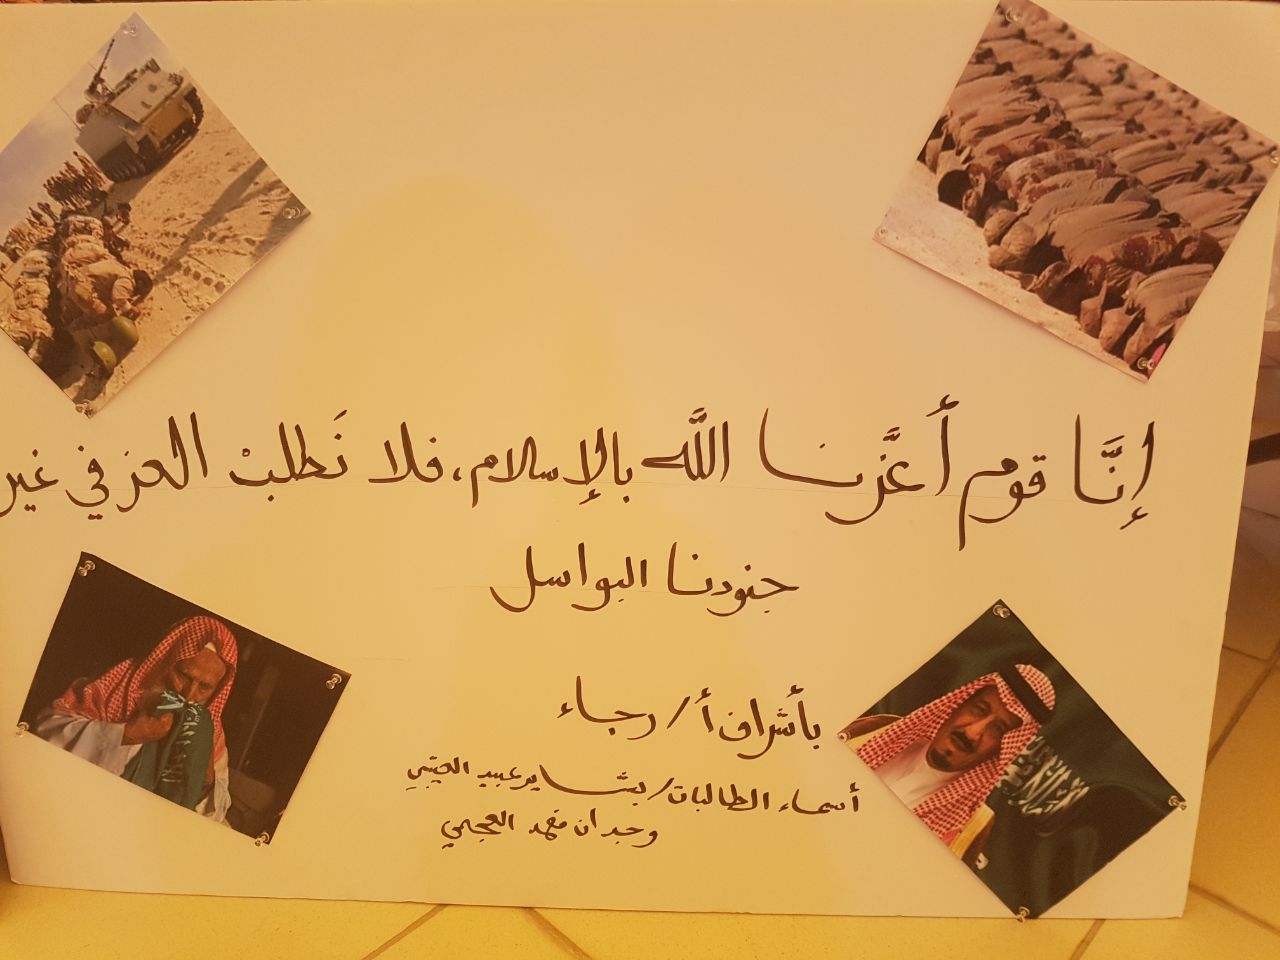 إنَّا قوم أعزَّنا اللَّه بالإسلام، فلا نَطلبْ العز في غير
جنودنا البواسل
بأشراف أ/ رجاء
أسماء الطالبات/ بشاير عبيد العتيبي
وجدان فهد العجمي